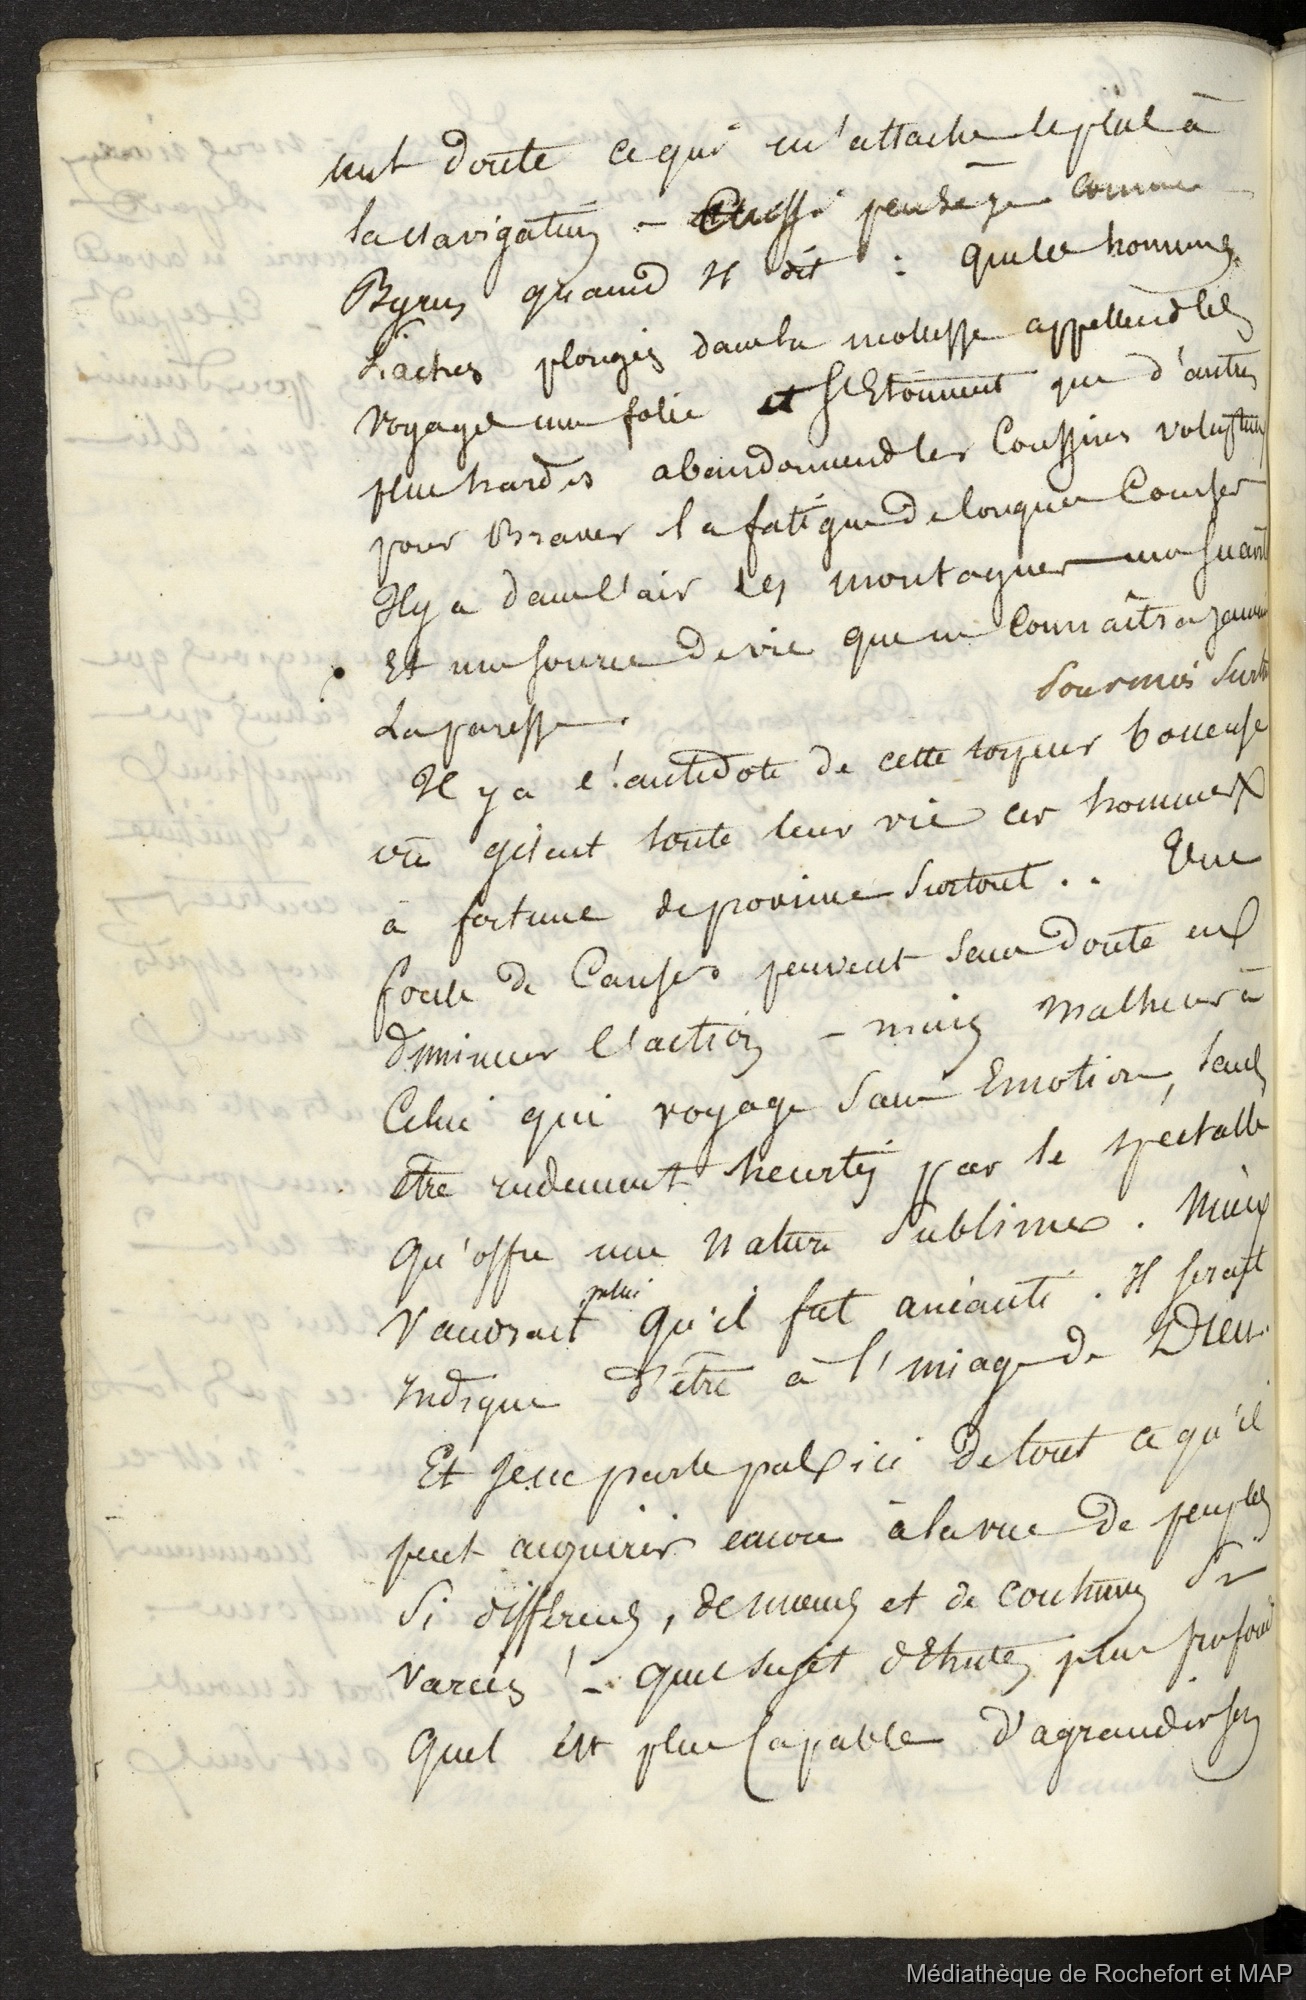 nul doute ce qui m'attache le plus à
la navigation – Aussi pensè-je comme
Byron quand Il dit : que les hommes
Lâches plongés dans la mollesse appellent les
voyages une folie et S'Etonnent que d'autres
plus hardis abandonnent les Coussins voluptueux
pour Braver la fatigue de longues Courses
Il y a dans l'air des montagnes une suavité
Et une source de vie que ne Connaîtra jamais
La paresse.
Il y a l'antidote de cette torpeur boueuse
où gisent toute leur vie ces hommes
Soumis surtt
à fortune de province surtout .. Une
foule de Causes peuvent sans doute en
diminuer l'action – mais malheur à
Celui qui voyage sans Emotion, sans
être rudement heurté par le spectacle
qu'offre une nature Sublime. Mieux
Vaudrait qu'il fut anéanti. Il serait
Indigne d'être à l'image de Dieu.
Et Je ne parle pas ici de tout ce qu'il
peut acquérir encore à la vue de peuples
Si différens, de mœurs et de coutumes Si
Variés ! – quel sujet d'Etudes plus profond
Quel est plus Capable d'agrandir son
Médiathèque de Rochefort et MAP